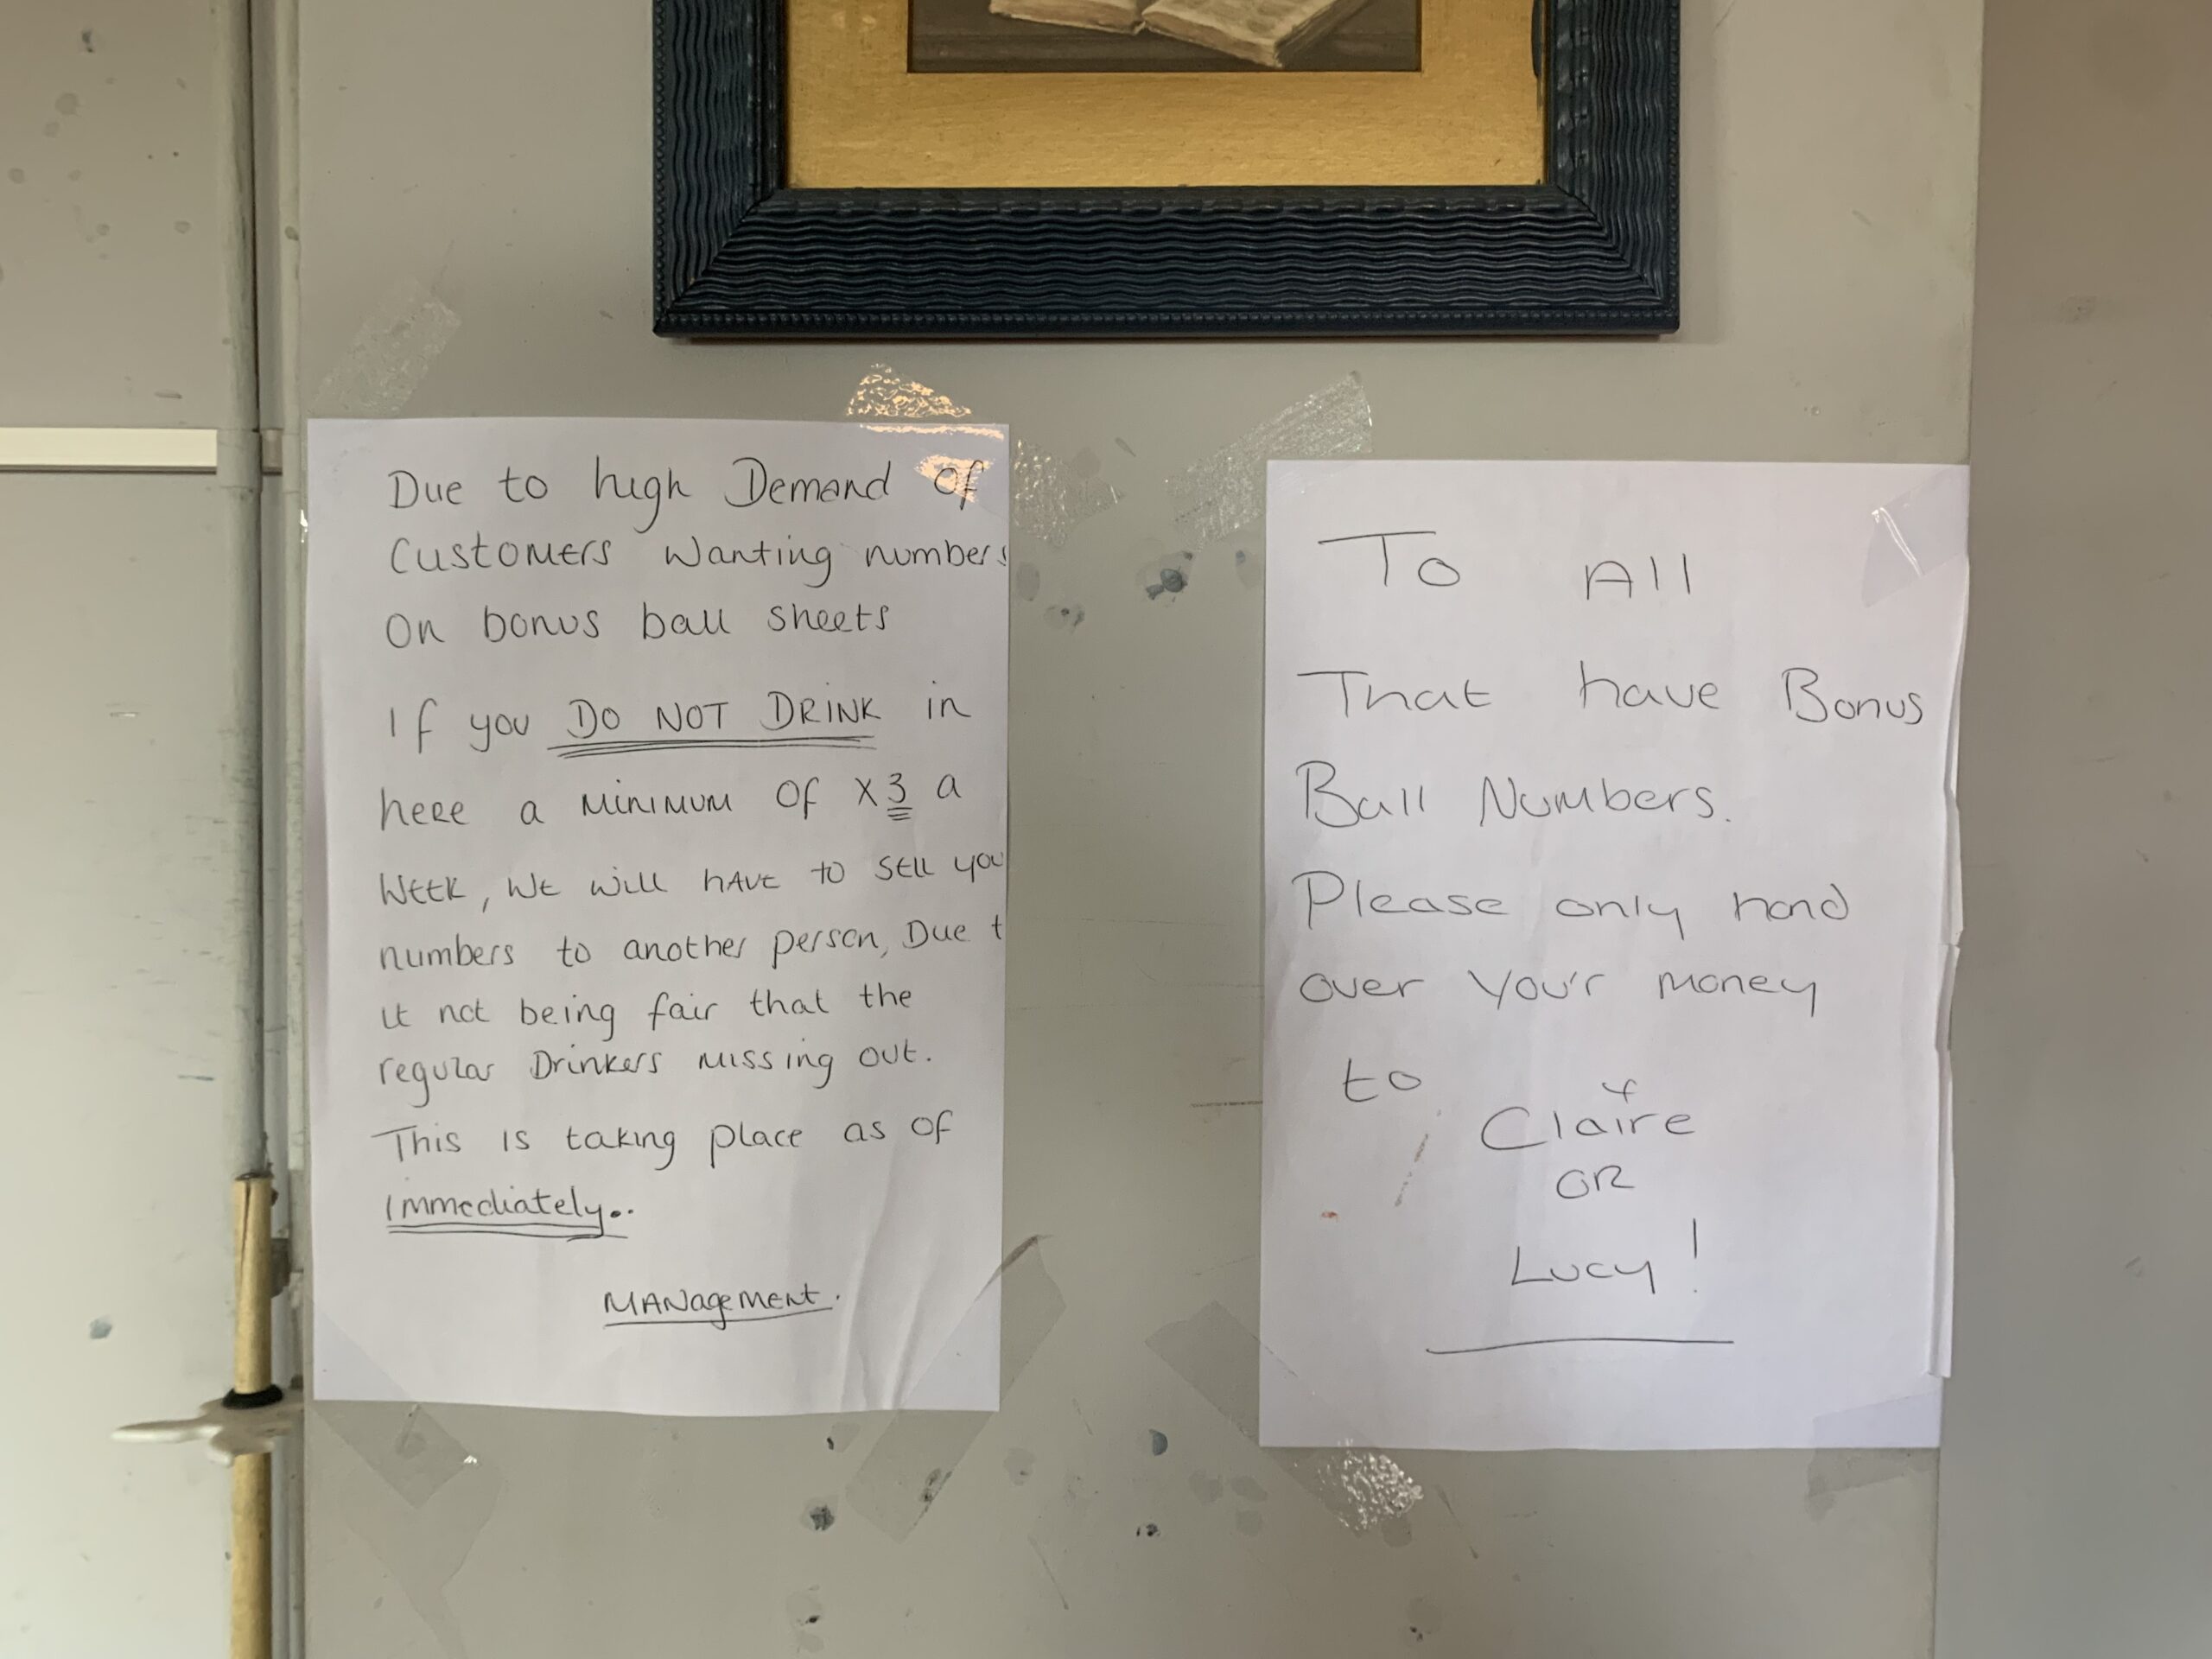 Due to high Demand of
Customers Wanting numbers
On bonus ball sheets
If you DO NOT DRINK in
here a minimum of x3 a
WEEK, WE will have to sell you
numbers to another person, Due t
it not being fair that the
regular Drinkers missing out.
This is taking place as of
immediately..
MANageMENt.
To All
That have Bonus
Ball Numbers.
Please only hand
over You'r money
to
Claire
OR
Lucy!